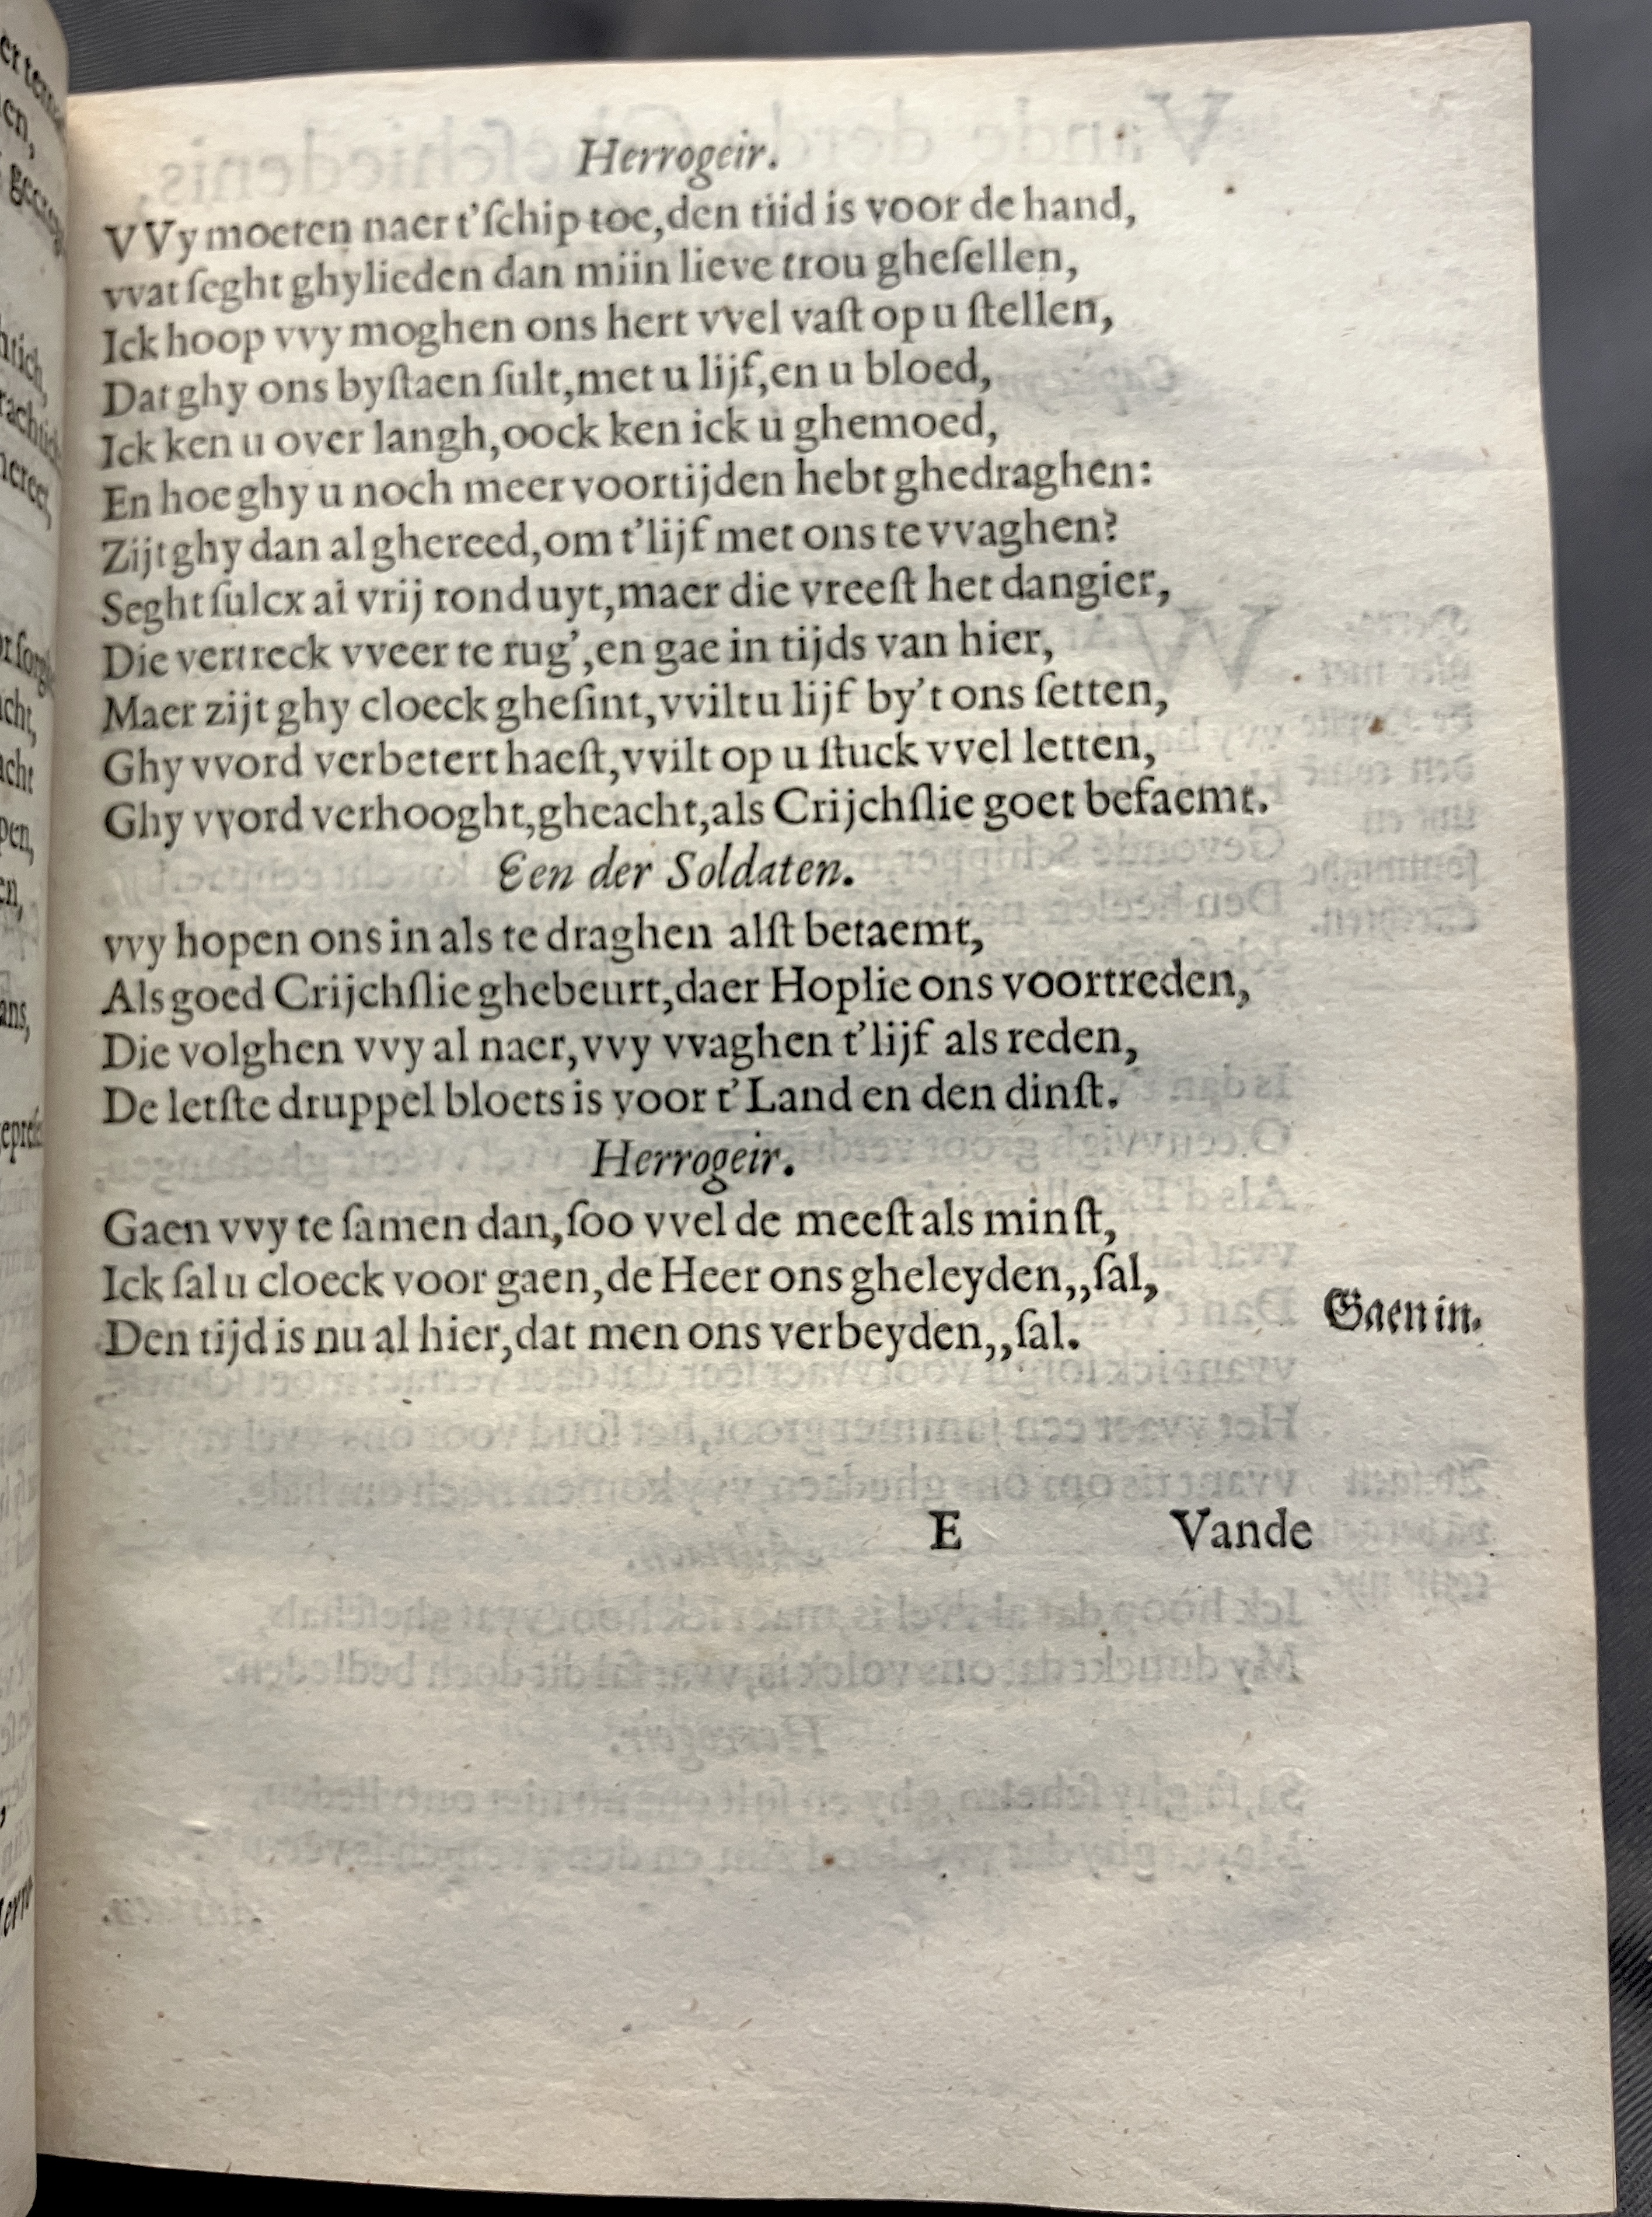 Herrogeir.
VVy moeten naer t'ſchip toe,den tiid is voor de hand,
vvat ſeght ghylieden dan miin lieve trou gheſellen,
Ick hoop vvy moghen ons hert vvel vaſt op u ſtellen,
Dat ghy ons byſtaen ſult,met u lijf,en u bloed,
Ick ken u over langh,oock ken ick u ghemoed,
En hoe ghy u noch meer voortijden hebt ghedraghen:
Zijt ghy dan al ghereed,om t'lijf met ons te vvaghen?
Seght ſulcx al vrij rond uyt,maer die vreeſt het dangier,
Die vertreck vveer te rug',en gae in tijds van hier,
Maer zijt ghy cloeck gheſint,vvilt u lijf by't ons ſetten,
Ghy vvord verbetert haeſt,vvilt op u ſtuck vvel letten,
Ghy vvord verhooght,gheacht,als Crijchſlie goet befaemt.
Een der Soldaten.
vvy hopen ons in als te draghen alſt betaemt,
Als goed Crijchſlie ghebeurt,daer Hoplie ons voortreden,
Die volghen vvy al naer,vvy vvaghen t'lijf als reden,
De letſte druppel bloets is voor t'Land en den dinſt.
Herrogeir.
Gaen vvy te ſamen dan,ſoo vvel de meeſt als minſt,
Ick ſal u cloeck voor gaen,de Heer ons gheleyden,,ſal,
Den tijd is nu al hier,dat men ons verbeyden,,ſal.
Gaen in.
E Vande